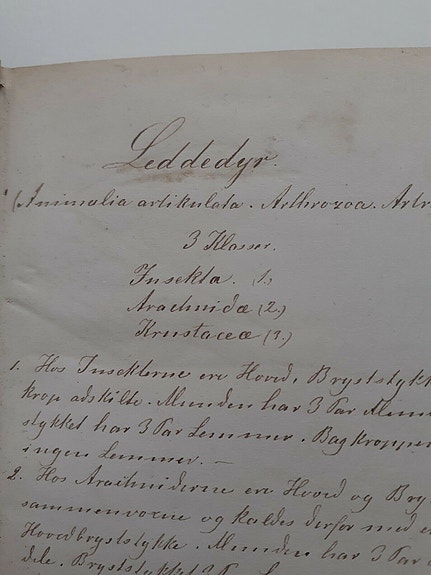 Leddedyr.
(Animalia artikulata. Arthrozoa. Artr
3 Klasser.
Insekta. (1.)
Arachnidæ (2.)
Krustaceæ (3.)
1. Hos Insekterne ere Hoved, Bryststykk
krop adskilte. Munden har 3 Par Mun
stykket har 3 Par Lemmer. Bagkroppen
ingen Lemmer. —
2. Hos Arachniderne ere Hoved og Bry
sammenvoxne og kaldes derfor med e
Hovedbryststykke. Munden har 3 Par
dele. Bryststykket